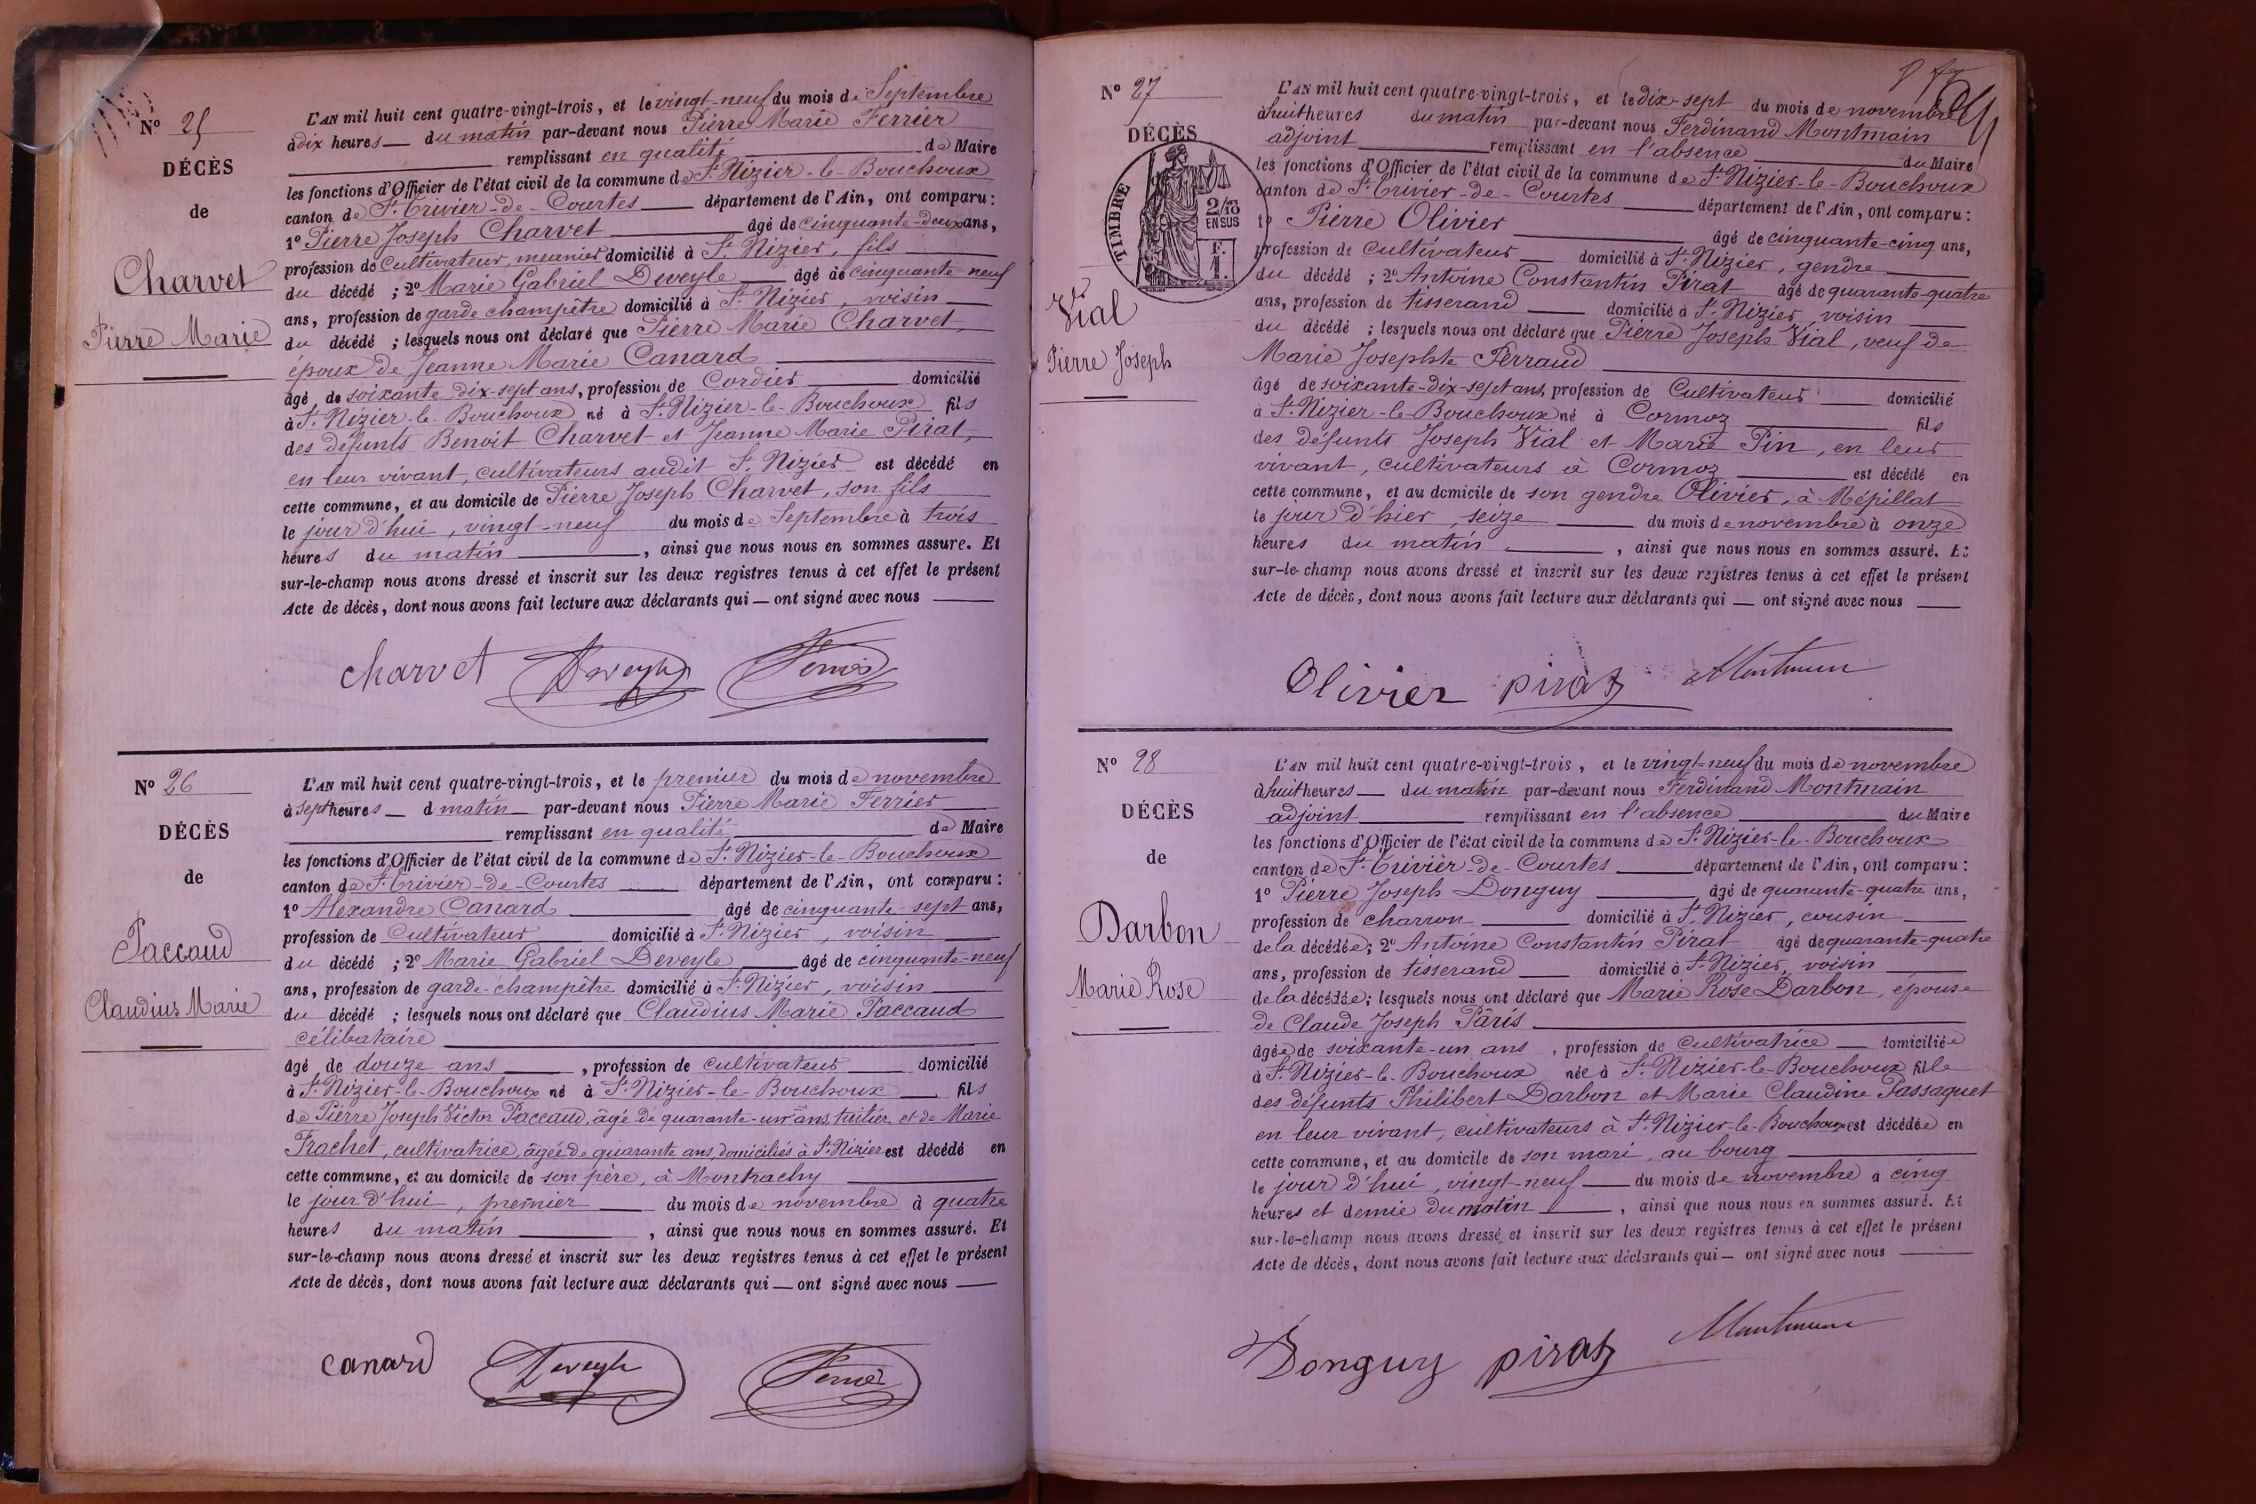 N° 25
DÉCÈS
de
Charvet
Pierre Marie
L'AN mil huit cent quatre-vingt-trois, et le vingt-neuf du mois de Septembre
à dix heures du matin par-devant nous Pierre Marie Ferrier
remplissant en qualité de Maire
les fonctions d'Officier de l'état civil de la commune de St Nizier-le-Bouchoux
canton de St Trivier-de-Courtes département de l'Ain, ont comparu:
1° Pierre Joseph Charvet âgé de cinquante-deux ans,
profession de Cultivateur, meunier domicilié à St Nizier, fils
du décédé ; 2° Marie Gabriel Deveyle âgé de cinquante-neuf
ans, profession de garde champêtre domicilié à St Nizier, voisin
du décédé ; lesquels nous ont déclaré que Pierre Marie Charvet,
époux de Jeanne Marie Canard
âgé de soixante-dix-sept ans, profession de Cordier domicilié
à St Nizier-le-Bouchoux né à St Nizier-le-Bouchoux fils
des défunts Benoit Charvet et Jeanne Marie Pirat,
en leur vivant, cultivateurs audit St Nizier est décédé en
cette commune, et au domicile de Pierre Joseph Charvet, son fils
le jour d'hui, vingt-neuf du mois de Septembre à trois
heures du matin , ainsi que nous nous en sommes assuré. Et
sur-le-champ nous avons dressé et inscrit sur les deux registres tenus à cet effet le présent
Acte de décès, dont nous avons fait lecture aux déclarants qui — ont signé avec nous
charvet Deveyle Ferrier
N° 26
DÉCÈS
de
Paccaud
Claudius Marie
L'AN mil huit cent quatre-vingt-trois, et le premier du mois de novembre
à sept heures d matin par-devant nous Pierre Marie Ferrier
remplissant en qualité de Maire
les fonctions d'Officier de l'état civil de la commune de St Nizier-le-Bouchoux
canton de St Trivier-de-Courtes département de l'Ain, ont comparu:
1° Alexandre Canard âgé de cinquante-sept ans,
profession de Cultivateur domicilié à St Nizier, voisin
du décédé ; 2° Marie Gabriel Deveyle âgé de cinquante-neuf
ans, profession de garde-champêtre domicilié à St Nizier, voisin
du décédé ; lesquels nous ont déclaré que Claudius Marie Paccaud
célibataire
âgé de douze ans , profession de cultivateur domicilié
à St Nizier-le-Bouchoux né à St Nizier-le-Bouchoux fils
de Pierre Joseph Victor Paccaud, âgé de quarante-un ans, tuilier et de Marie
Frachet, cultivatrice, âgée de quarante ans, domiciliés à St Nizier est décédé en
cette commune, et au domicile de son père, à Montrachy
le jour d'hui, premier du mois de novembre à quatre
heures du matin , ainsi que nous nous en sommes assuré. Et
sur-le-champ nous avons dressé et inscrit sur les deux registres tenus à cet effet le présent
Acte de décès, dont nous avons fait lecture aux déclarants qui — ont signé avec nous
canard Deveyle Ferrier
N° 27
DÉCÈS
TIMBRE
2/10
EN SUS
F.
1.
Vial
Pierre Joseph
L'AN mil huit cent quatre-vingt-trois, et le dix-sept du mois de novembre
à huit heures du matin par-devant nous Ferdinand Montmain
adjoint remplissant en l'absence du Maire
les fonctions d'Officier de l'état civil de la commune de St Nizier-le-Bouchoux
canton de St Trivier-de-Courtes département de l'Ain, ont comparu:
1° Pierre Olivier âgé de cinquante-cinq ans,
profession de Cultivateur domicilié à St Nizier, gendre
du décédé ; 2° Antoine Constantin Pirat âgé de quarante-quatre
ans, profession de tisserand domicilié à St Nizier, voisin
du décédé ; lesquels nous ont déclaré que Pierre Joseph Vial, veuf de
Marie Josephte Perraud
âgé de soixante-dix-sept ans, profession de Cultivateur domicilié
à St Nizier-le-Bouchoux né à Cormoz fils
des défunts Joseph Vial et Marie Pin, en leur
vivant, cultivateurs à Cormoz est décédé en
cette commune, et au domicile de son gendre Olivier, à Mépillat
le jour d'hier, seize du mois de novembre à onze
heures du matin , ainsi que nous nous en sommes assuré. Et
sur-le-champ nous avons dressé et inscrit sur les deux registres tenus à cet effet le présent
Acte de décès, dont nous avons fait lecture aux déclarants qui — ont signé avec nous
Olivier pirat Montmain
N° 28
DÉCÈS
de
Darbon
Marie Rose
L'AN mil huit cent quatre-vingt-trois, et le vingt-neuf du mois de novembre
à huit heures du matin par-devant nous Ferdinand Montmain
adjoint remplissant en l'absence du Maire
les fonctions d'Officier de l'état civil de la commune de St Nizier-le-Bouchoux
canton de St Trivier-de-Courtes département de l'Ain, ont comparu:
1° Pierre Joseph Donguy âgé de quarante-quatre ans,
profession de charron domicilié à St Nizier, cousin
de la décédée; 2° Antoine Constantin Pirat âgé de quarante-quatre
ans, profession de tisserand domicilié à St Nizier, voisin
de la décédée; lesquels nous ont déclaré que Marie Rose Darbon, épouse
de Claude Joseph Pâris
âgée de soixante-un ans , profession de Cultivatrice domiciliée
à St Nizier-le-Bouchoux née à St Nizier-le-Bouchoux fille
des défunts Philibert Darbon et Marie Claudine Passaquet
en leur vivant, cultivateurs à St Nizier-le-Bouchoux est décédée en
cette commune, et au domicile de son mari, au bourg
le jour d'hui, vingt-neuf du mois de novembre à cinq
heures et demie du matin , ainsi que nous nous en sommes assuré. Et
sur-le-champ nous avons dressé et inscrit sur les deux registres tenus à cet effet le présent
Acte de décès, dont nous avons fait lecture aux déclarants qui — ont signé avec nous
Donguy pirat Montmain